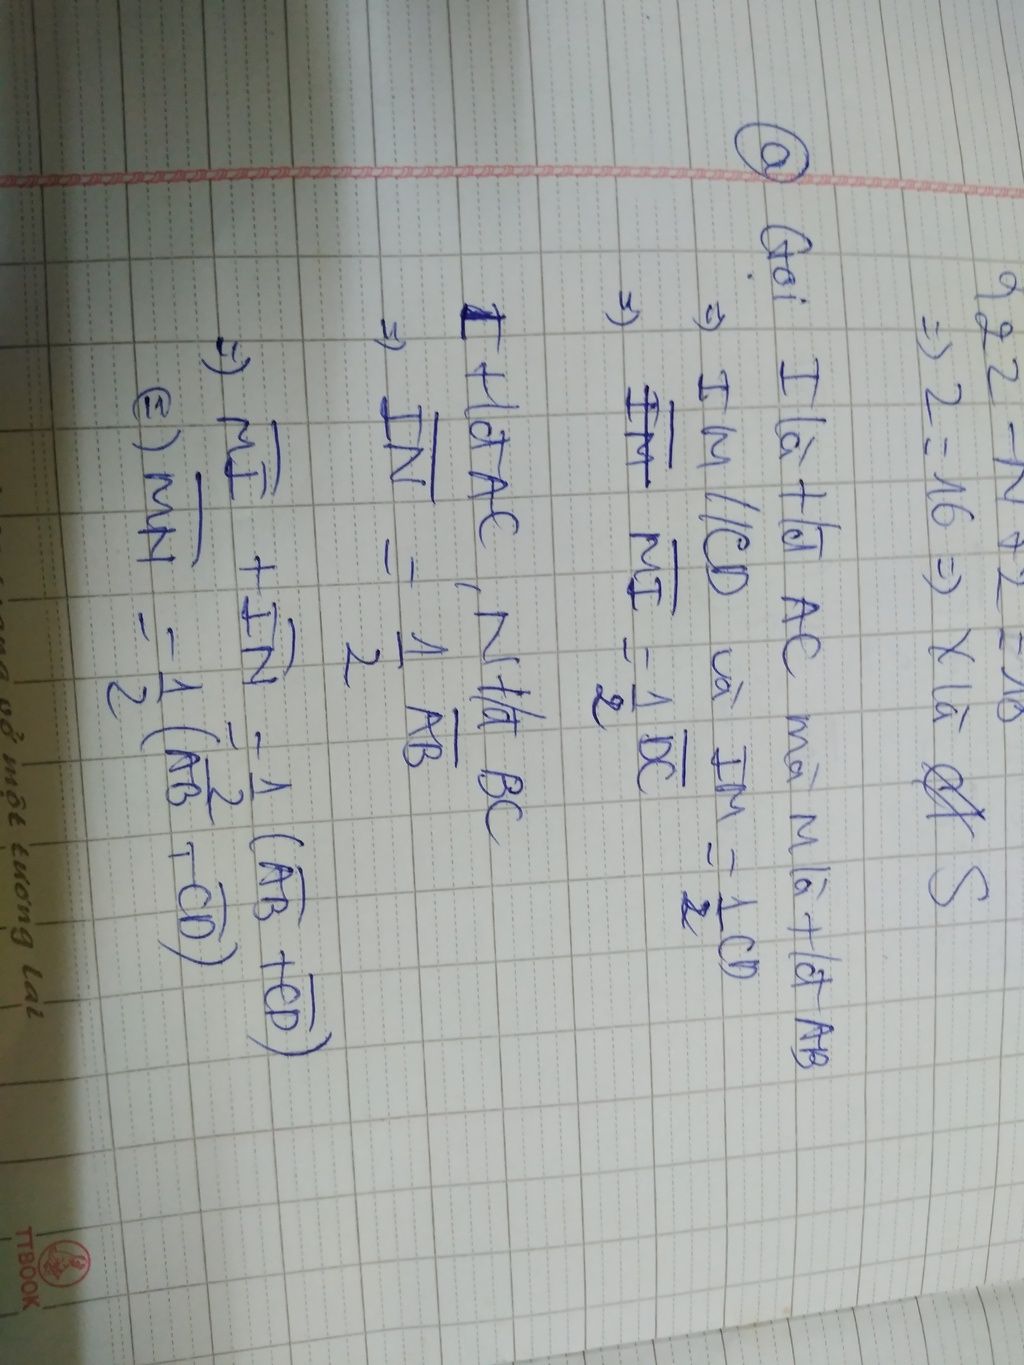 922 - N + 2 = 18
=) 2 = 16 =) X là S
a Gọi I là tđ AC mà M là tđ AB
=) IM // CD và IM = 1/2 CD
=) MI = 1/2 DC
I tđ AC, N tđ BC
=) IN = 1/2 AB
=) MI + IN = 1/2 (AB + CD)
(=) MN = 1/2 (AB + CD)
tương lai
TTBOOK